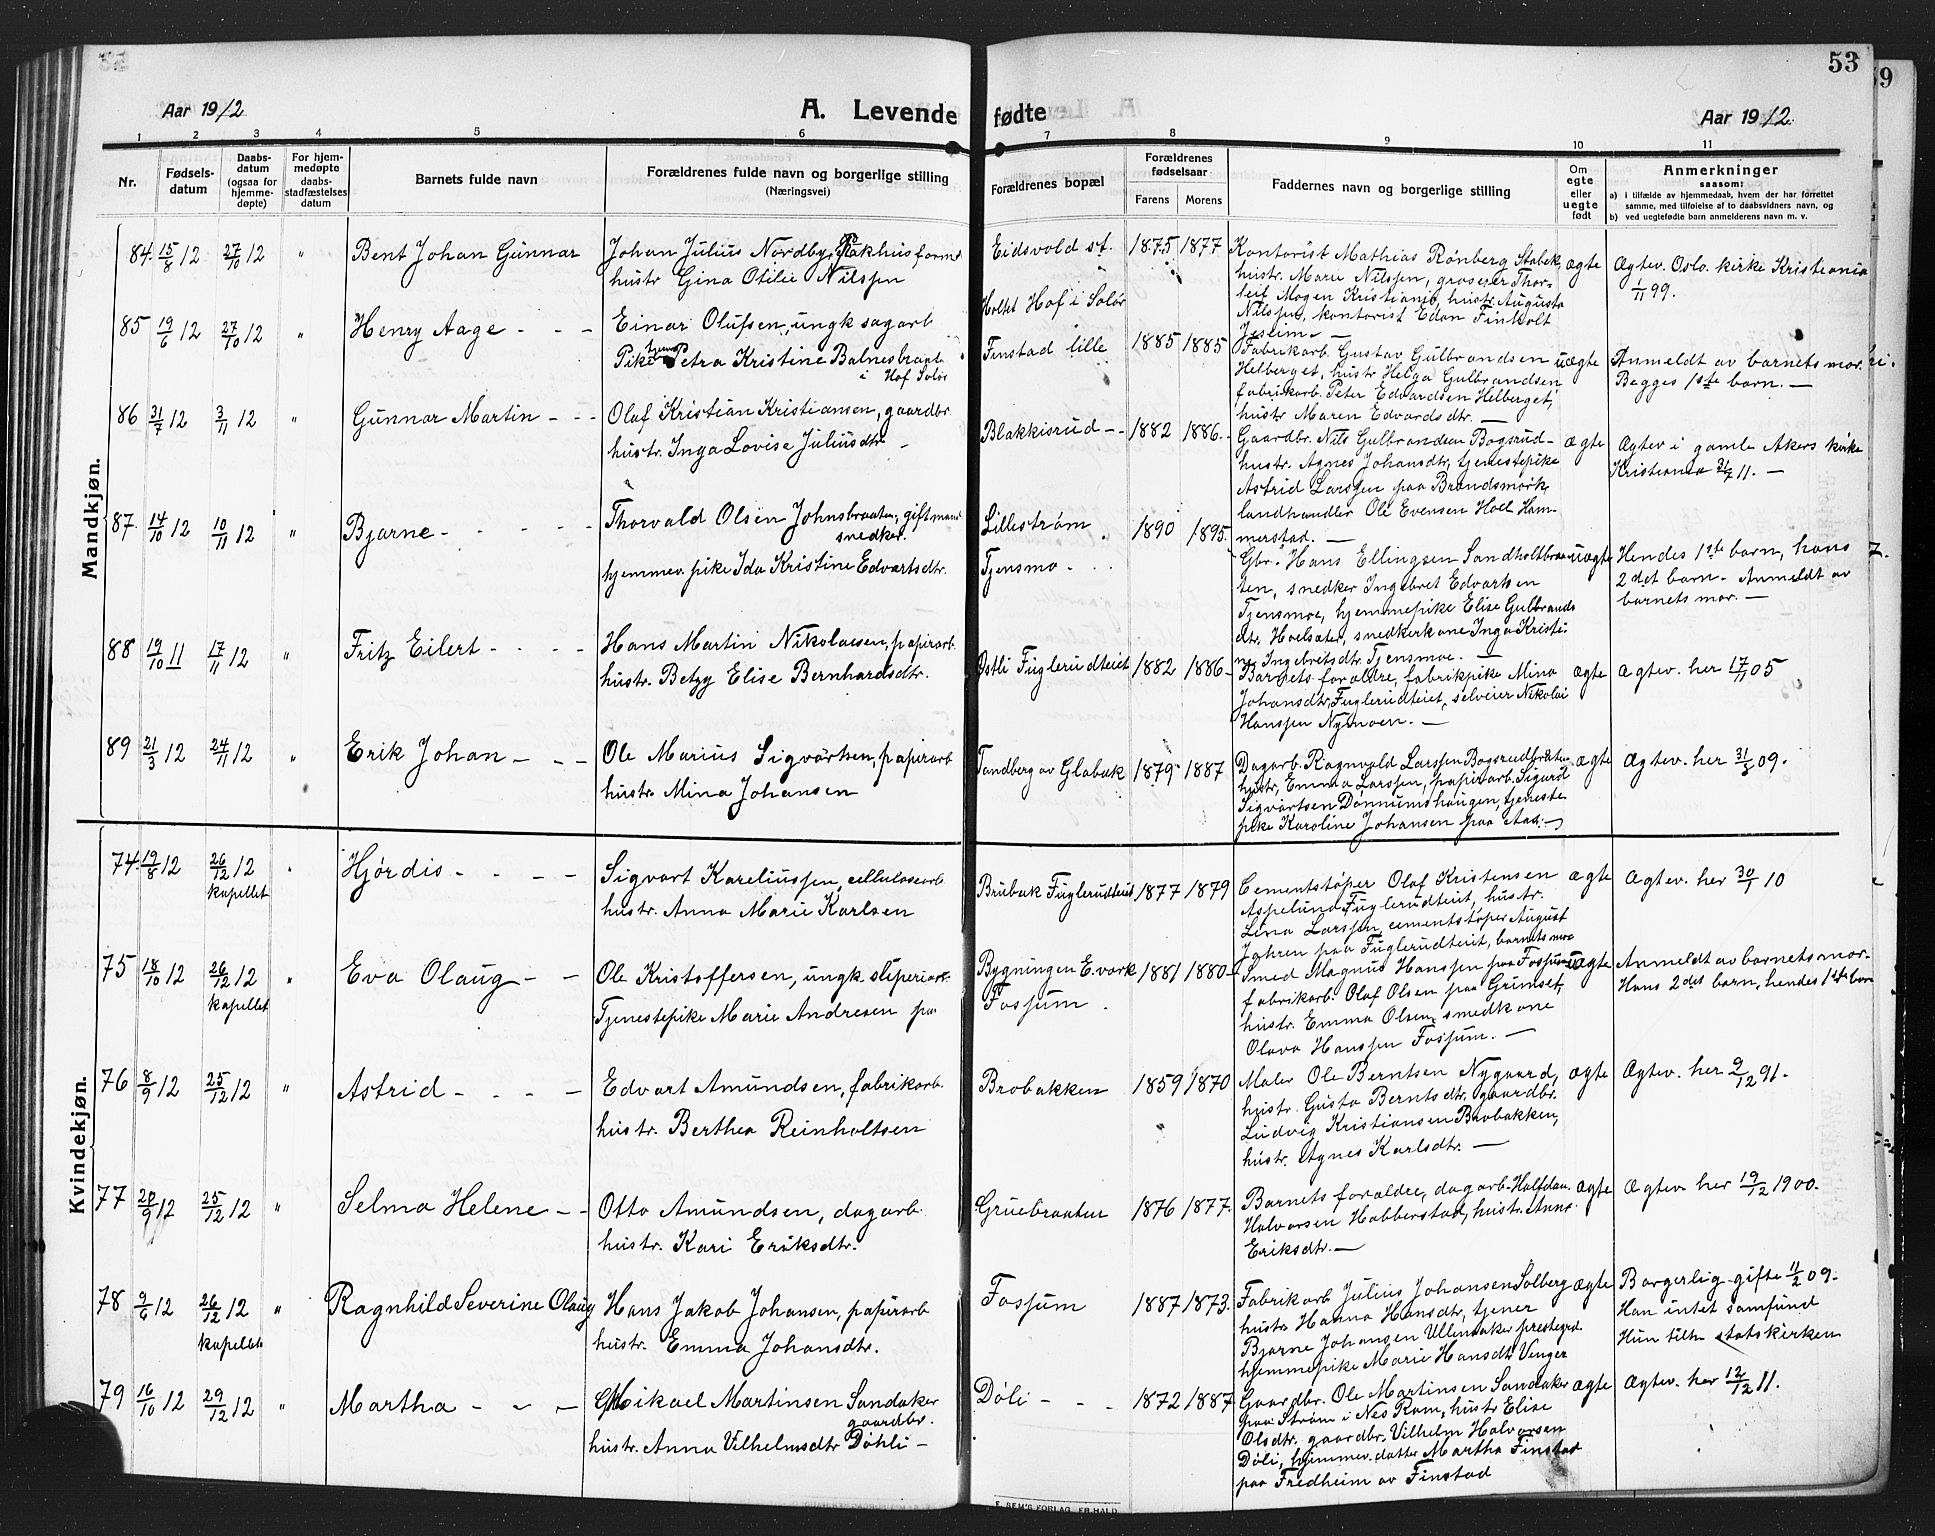 53
Aar 1912
A. Levende fødte
Aar 1912.
1 2 3 4 5 6 7 8 9 10 11
Nr.
Fødsels-
datum
Daabs-
datum
(ogsaa for
hjemme-
døpte)
For hjem-
medøpte
daabs-
stadfæstelses
datum
Barnets fulde navn
Forældrenes fulde navn og borgerlige stilling
(Næringsvei)
Forældrenes bopæl
Forældrenes
fødselsaar
Farens Morens
Faddernes navn og borgerlige stilling
Om
egte
eller
uegte
født
Anmerkninger
saasom:
a) i tilfælde av hjemmedaab, hvem der har forrettet
samme, med tilføielse af to daabsvidners navn, og
b) ved uegtefødte barn anmelderens navn m. v.
Mandkjøn.
84. 15/8 12 27/10 12 " Bent Johan Gunnar
Johan Julius Nordby, Pakhusform
hustr Gina Otilie Nilssen
Eidsvold st. 1875 1877
Kontorist Mathias Rønberg Stabek,
hustr. Marie Nilssen, grosserer Thor-
leif Mogen Kristiania, hustr. Augusta
Nilssen, kontorist Edon Finholt
Jessim. —
ægte
Ægtev. Oslo kirke Kristiania
1/11 99.
85 19/6 12 27/10 12 " Henry Aage - - -
Einar Olufsen, ungk sagarb
Pike Petra Kristine Balnesbraat
i Hof Solør
Holtet Hof i Solør
Finstad lille 1885 1885
Fabrikarb. Gustav Gulbrandsen
Helberget, hustr Helga Gulbrandsen
fabrikarb. Peter Edvardsen Helberget,
hustr Maren Edvardsdtr. —
uægte
Anmeldt av barnets mor.
Begges 1ste barn. —
86 31/7 12 3/11 12 " Gunnar Martin - - -
Olaf Kristian Kristiansen, gaardbr.
hustr. Inga Lovise Juliusdtr. -
Blakkisrud - - 1882 1886.
Gaardbr. Nils Gulbrandsen Bogsrud -
hustr. Agnes Johansdtr, tjenestepike
Astrid Larssen paa Brandsmørk,
landhandler Ole Evensen Hoel Ham-
merstad. —
ægte
Ægtev i gamle Akers kirke
Kristiania 11. —
87. 14/10 12 10/11 12 " Bjarne - - - -
Thorvald Olsen Johnsbraaten, gift mand
snedker.
hjemmev. pike Ida Kristine Edvartsdtr.
Lillestrøm .
Tjensmo - . . 1890 1895.
Gbr. Hans Ellingsen Sandholtbraa-
ten, snedker Ingebret Edvartsen
Tjensmoe, hjemmepike Elise Gulbrands
dtr. Hoelsæter, snedkerkone Inga Kristi-
ne Ingebretsdtr. Tjensmoe. —
uægte
Hendes 1ste barn, hans
2det barn. Anmeldt av
barnets mor. —
88 19/10 11 17/11 12 " Fritz Eilert - - - -
Hans Martin Nikolaisen, papirarb.
hustr. Betzy Elise Bernhardsdtr.
Østli Fuglerudteiet 1882 1886 -
Barnets forældre, fabrikpike Mina
Johansdtr, Fuglerudteiet, selveier Nikolai
Hanssen Nysmoen. —
ægte
Ægtev. her 17/11 05
89 21/3 12 24/11 12 " Erik Johan - - -
Ole Marius Sigvartsen, papirarb
hustr. Mina Johansen
Tandberg av Glabak 1879 1887
Dagarb. Ragnvald Larssen Bogsrudbraaten
hustr, Emma Larssen, papirarb. Sigurd
Sigvartsen Dønnumshaugen, tjeneste
pike Karoline Johansen paa Aas. —
ægte
Ægtev. her 09.
Kvindekjøn.
74. 19/8 12 26/12 12
kapellet
Hjørdis - - - -
Sigvart Kareliussen, cellulosearb
hustr. Anna Marie Karlsen
Brubak Fuglerudteiet 1877 1879
Cementstøper Olaf Kristensen
Aspelund Fuglerudteiet, hustr.
Lina Larssen, cementstøper August
Jahren paa Fuglerudteiet, barnets moe
ægte
Ægtev. her 30/1 10
75 18/10 12 26/12 12 "
kapellet
Eva Olaug - -
Ole Kristoffersen, ungk. sliperiarb.
Tjenestepike Marie Andresen paa
Bygningen E.vark
Fossum . 1881 1880 -
Smed Magnus Hanssen paa Fossum
fabrikarb. Olaf Olsen paa Grimset,
hustr. Emma Olsen, smedkone
Olava Hanssen Fossum. —
uægte
Anmeldt av barnets mor -
Hans 2det barn, hendes 1ste barn
76 8/9 12 25/12 12 " Astrid - - - -
Edvart Amundsen, fabrikarb.
hustr. Berthea Reinholtsen
Brobakken 1859 1870
Maler Ole Berntsen Nygaard,
hustr. Gusta Berntsdtr. gaardbr.
Ludvig Kristiansen Brobakken,
hustr. Agnes Karlsdtr. —
ægte
Ægtev. her 9/12 91.
77 20/9 12 25/12 12 " Selma Helene - -
Otto Amundsen, dagarb.
hustr. Kari Eriksdtr.
Gruebraaten 1876 1877.
Barnets forældre, dagarb. Halfdan
Halvorsen Habberstad, hustr. Anna
Eriksdtr. —
ægte
Ægtev her 19/12 1900.
78 9/6 12 26/12 12 "
kapellet
Ragnhild Severine Olaug
Hans Jakob Johansen, papirarb
hustr. Emma Johansdtr.
Fossum 1887 1873.
Fabrikarb Julius Johansen Solberg
hustr Hanna Hansdtr, tjener
Bjarne Johansen Ullensaker prestegrd.
hjemmepike Marie Hansdtr Venger
ægte
Borgerlig gifte 11/2 09 -
Han intet samfund
Hun tilh. statskirken
79 16/10 12 29/12 12 " Martha - - -
Mikael Martinsen Sandaker
gaardbr.
hustr. Anna Vilhelmsdtr Døhli -
Døli - - - 1872 1887
Gaardbr. Ole Martinsen Sandaker
paa Strøm i Nes Rom, hustr Elise
Olsdtr. gaardbr. Vilhelm Halvorsen
Døli, hjemmev. datter Martha Finstad
paa Fredheim av Finstad
ægte
Ægtev. her 12/12 11.
E. SEM'S FORLAG, FR.HALD